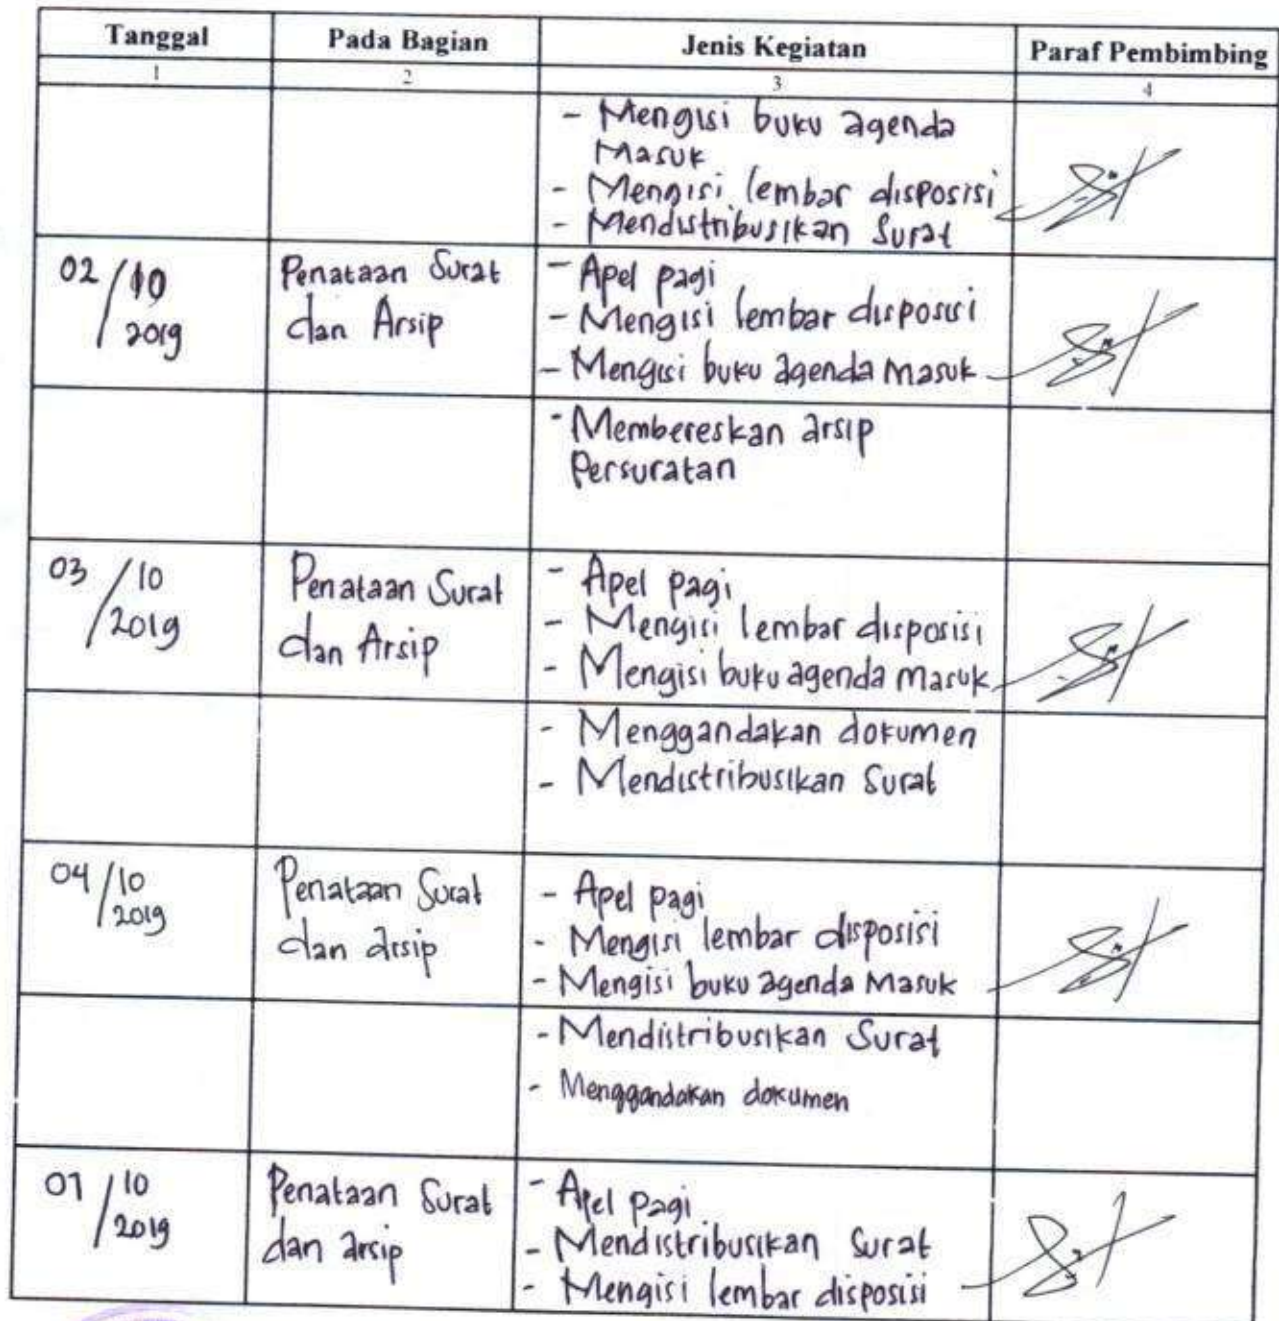 Tanggal Pada Bagian Jenis Kegiatan Paraf Pembimbing
1 2 3 4
- Mengisi buku agenda
Masuk
- Mengisi lembar disposisi
- Mendistribusikan Surat
02/10 2019
Penataan Surat
dan Arsip
- Apel pagi
- Mengisi lembar disposisi
- Mengisi buku agenda masuk
- Membereskan arsip
Persuratan
03/10 2019
Penataan Surat
dan Arsip
- Apel pagi
- Mengisi lembar disposisi
- Mengisi buku agenda masuk
- Menggandakan dokumen
- Mendistribusikan Surat
04/10 2019
Penataan Surat
dan arsip
- Apel pagi
- Mengisi lembar disposisi
- Mengisi buku agenda Masuk
- Mendistribusikan Surat
- Menggandakan dokumen
07/10 2019
Penataan Surat
dan arsip
- Apel pagi
- Mendistribusikan Surat
- Mengisi lembar disposisi